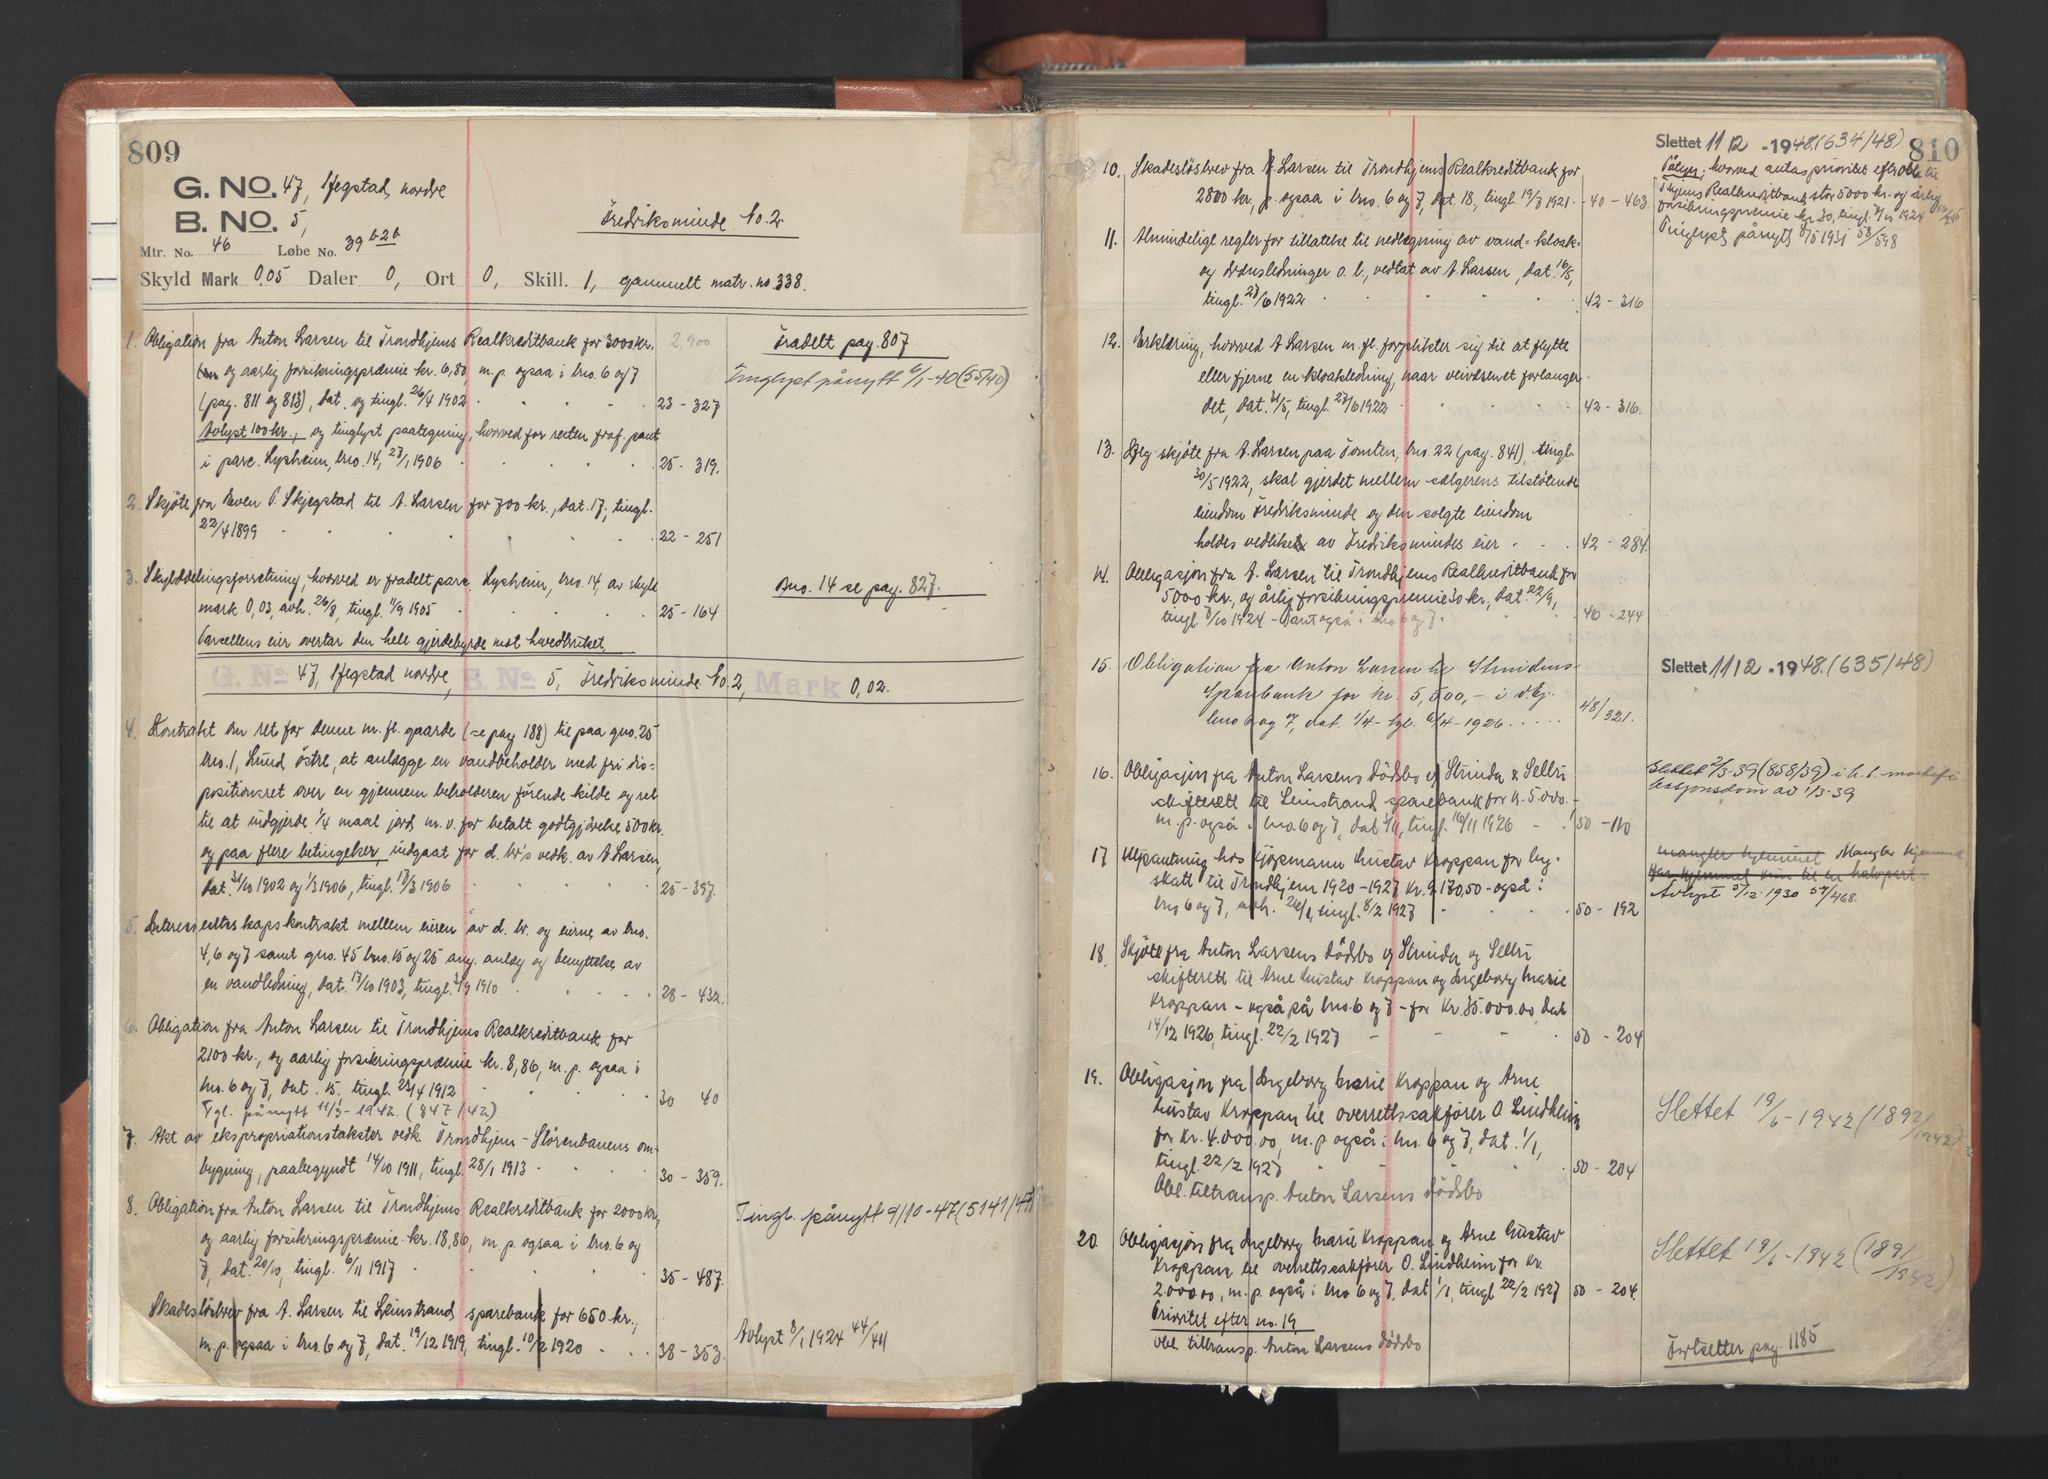 809
G. No. 47, Hegstad nordre
B. No. 5,
Fredriksminde No. 2
Mtr. No. 46 Løbe No. 39 b 2 b
Skyld Mark 0,05 Daler 0, Ort 0, Skill. 1, gammelt matr. no. 338.
1. Obligation fra Anton Larsen til Trondhjems Realkreditbank for 3000 kr. 2,900
Fradelt pag. 807
og aarlig forsikringspræmie kr. 6,80, m. p. ogsaa i bno. 6 og 7
Tinglyst pånytt 6/1-40 (55/40)
(pag. 811 og 813), dat. og tingl. 26/4 1902 23 - 327
Avlyst 100 kr., og tinglyst paategning, hvorved for resten fraf. pant
i parc. Lysheim, bno. 14, 27/1 1906 25 - 319.
2. Skjöte fra Even O. Skjegstad til A. Larsen for 700 kr., dat. 17, tingl.
22/4 1899 22 - 251
3. Skylddelingsforretning, hvorved er fradelt parc. Lysheim, bno. 14, av skyld
Bno. 14 se pag. 827.
mark 0,03, avh. 26/8, tingl. 1/9 1905 25 - 164
Parcellens eier overtar den hele gjerdebyrde mot hovedbruket
G. No 47, Hegstad nordre, B. No 5, Fredriksminde No. 2, Mark 0,02.
4. Kontrakt om ret for denne m. fl. gaarde (se pag 188) til paa gno. 25
bno. 1, Lund östre, at anlægge en vandbeholder med fri dis=
positionsret over en gjennem beholderen förende kilde og ret
til at indgjerde 1/4 maal jord m. v. for betalt godtgjörelse 500 kr.
og paa flere betingelser, indgaat for d. br's vedk. av A. Larsen,
dat. 31/10 1902 og 1/3 1906, tingl. 17/3 1906 25 - 397.
5. Interessentskapskontrakt mellem eieren av d. br. og eierne av bno.
4, 6 og 7 samt gno. 45 bno. 15 og 25 ang. anlæg og benyttelse av
en vandledning, dat. 17/10 1903, tingl. 3/9 1910 28 - 432.
6. Obligation fra Anton Larsen til Trondhjems Realkreditbank for
2100 kr., og aarlig forsikringspræmie kr. 8,86, m. p. ogsaa i
bno. 6 og 7, dat. 15. tingl. 23/4 1912 30 40
Tgl. pånytt 11/3-1942. (847/42)
7. Akt av ekspropriationstakster vedk. Trondhjem-Störenbanens om=
bygning, paabegyndt 14/10 1911, tingl. 28/1 1913 30 - 359.
8. Obligation fra Anton Larsen til Trondhjems Realkreditbank for 2000 kr,
Tingl. pånytt 9/10-47 (5141/47)
og aarlig forsikringspræmie kr. 18,86, m. p. ogsaa i bno. 6 og
7, dat. 20/10, tingl. 6/11 1917 35 - 487.
Skadeslösbrev fra A. Larsen til Leinstrand sparebank for 650 kr.,
m. p. ogsaa i bno. 6 og 7, dat. 19/12 1919, tingl. 10/2 1920 38 - 353.
Avlyst 8/1 1924 44/44
810
Slettet 11/2 - 1948. (634/48)
10. Skadeslösbrev fra A. Larsen til Trondhjems Realkreditbank for
2800 kr., p. ogsaa i bno. 6 og 7, dat. 18, tingl. 19/3 1921. 40 - 463.
hvorved antas prioritet efter obl. til
T.hjems Realkreditbank stor 5000 kr. og årlig
forsikringspremie kr. 30, tingl. 7/10 1924
Tinglyst pånytt 8/5 1931 58/598
11. Almindelige regler for tillatelse til nedlægning av vand= kloak=
og drænsledninger o. l., vedtat av A. Larsen, dat. 16/5,
tingl. 23/6 1922 42 - 316
12. Erklæring, hvorved A. Larsen m. fl. forplikter sig til at flytte
eller fjerne en kloakledning, naar veivæsenet forlanger
det, dat. 31/5, tingl. 23/6 1922 42 - 316.
13. Iflg. skjöte fra A. Larsen paa Tomten, bno. 22 (pag. 841), tingl.
30/5 1922, skal gjerdet mellem sælgerens tilstötende
eiendom Fredriksminde og den solgte eiendom
holdes vedlike av Fredriksmindes eier 42 - 284.
14. Obligasjon fra A. Larsen til Trondhjems Realkreditbank for
5000 kr., og årlig forsikringspremie 30 kr., dat. 22/9,
tingl. 7/10 1924 - Pant også i bno. 6 og 7. 46 - 244
15. Obligation fra Anton Larsen til Strindens
Slettet 11/2 - 1948. (635/48)
Sparebank for kr. 5,500,- i d. bg.
bno 6 og 7, dat. 1/4 - tgl. 6/4 - 1926. 48/321.
16. Obligasjon fra Anton Larsens dödsbo v/ Strinda & Selbu
Slettet 2/3-39 (858/39) i h. t. mortifi
kasjonsdom av 1/3-39
skifterett til Leinstrand sparebank for kr. 5.000.-
m. p. også i bno. 6 og 7, dat. 3/11, tingl. 16/11 1926 - 50 - 110
17 Utpantning hos kjöpmann Gustav Kroppan for by-
mangler hjemmel Mangler hjemmel
skatt til Trondhjem 1920-1927 kr. 9.170,50 - også i
Har hjemmel kun til en halvpart.
bno 6 og 7, avh. 26/1, tingl. 8/2 1927 50 - 192
Avlyst 5/12 1930 57/468.
18. Skjöte fra Anton Larsens dödsbo v/ Strinda og Selbu
skifterett til Arne Gustav Kroppan og Ingeborg Marie
Kroppan - også på bno. 6 og 7 - for kr. 35.000.00, dat.
14/12 1926, tingl. 22/2 1927 50 - 204
19. Obligasjon fra Ingeborg Marie Kroppan og Arne
Gustav Kroppan til overrettssakförer O. Lindheim
for kr. 4.000.00, m. p. også i bno. 6 og 7, dat. 1/1,
Slettet 19/6-1942 (1892/1942)
tingl. 22/2 1927 50 - 204
Obl. tiltransp. Anton Larsens dödsbo
20. Obligasjon fra Ingeborg Marie Kroppan og Arne Gustav
Kroppan til overrettssakförer O. Lindheim for kr.
Slettet 19/6-1942 (1891/1942)
2.000.00, m. p. også i bno 6 og 7, dat 1/1, tingl. 22/2 1927 50 - 204.
Prioritet efter no. 19,
Obl. tiltransp. Anton Larsens dödsbo
Fortsetter pag. 1185